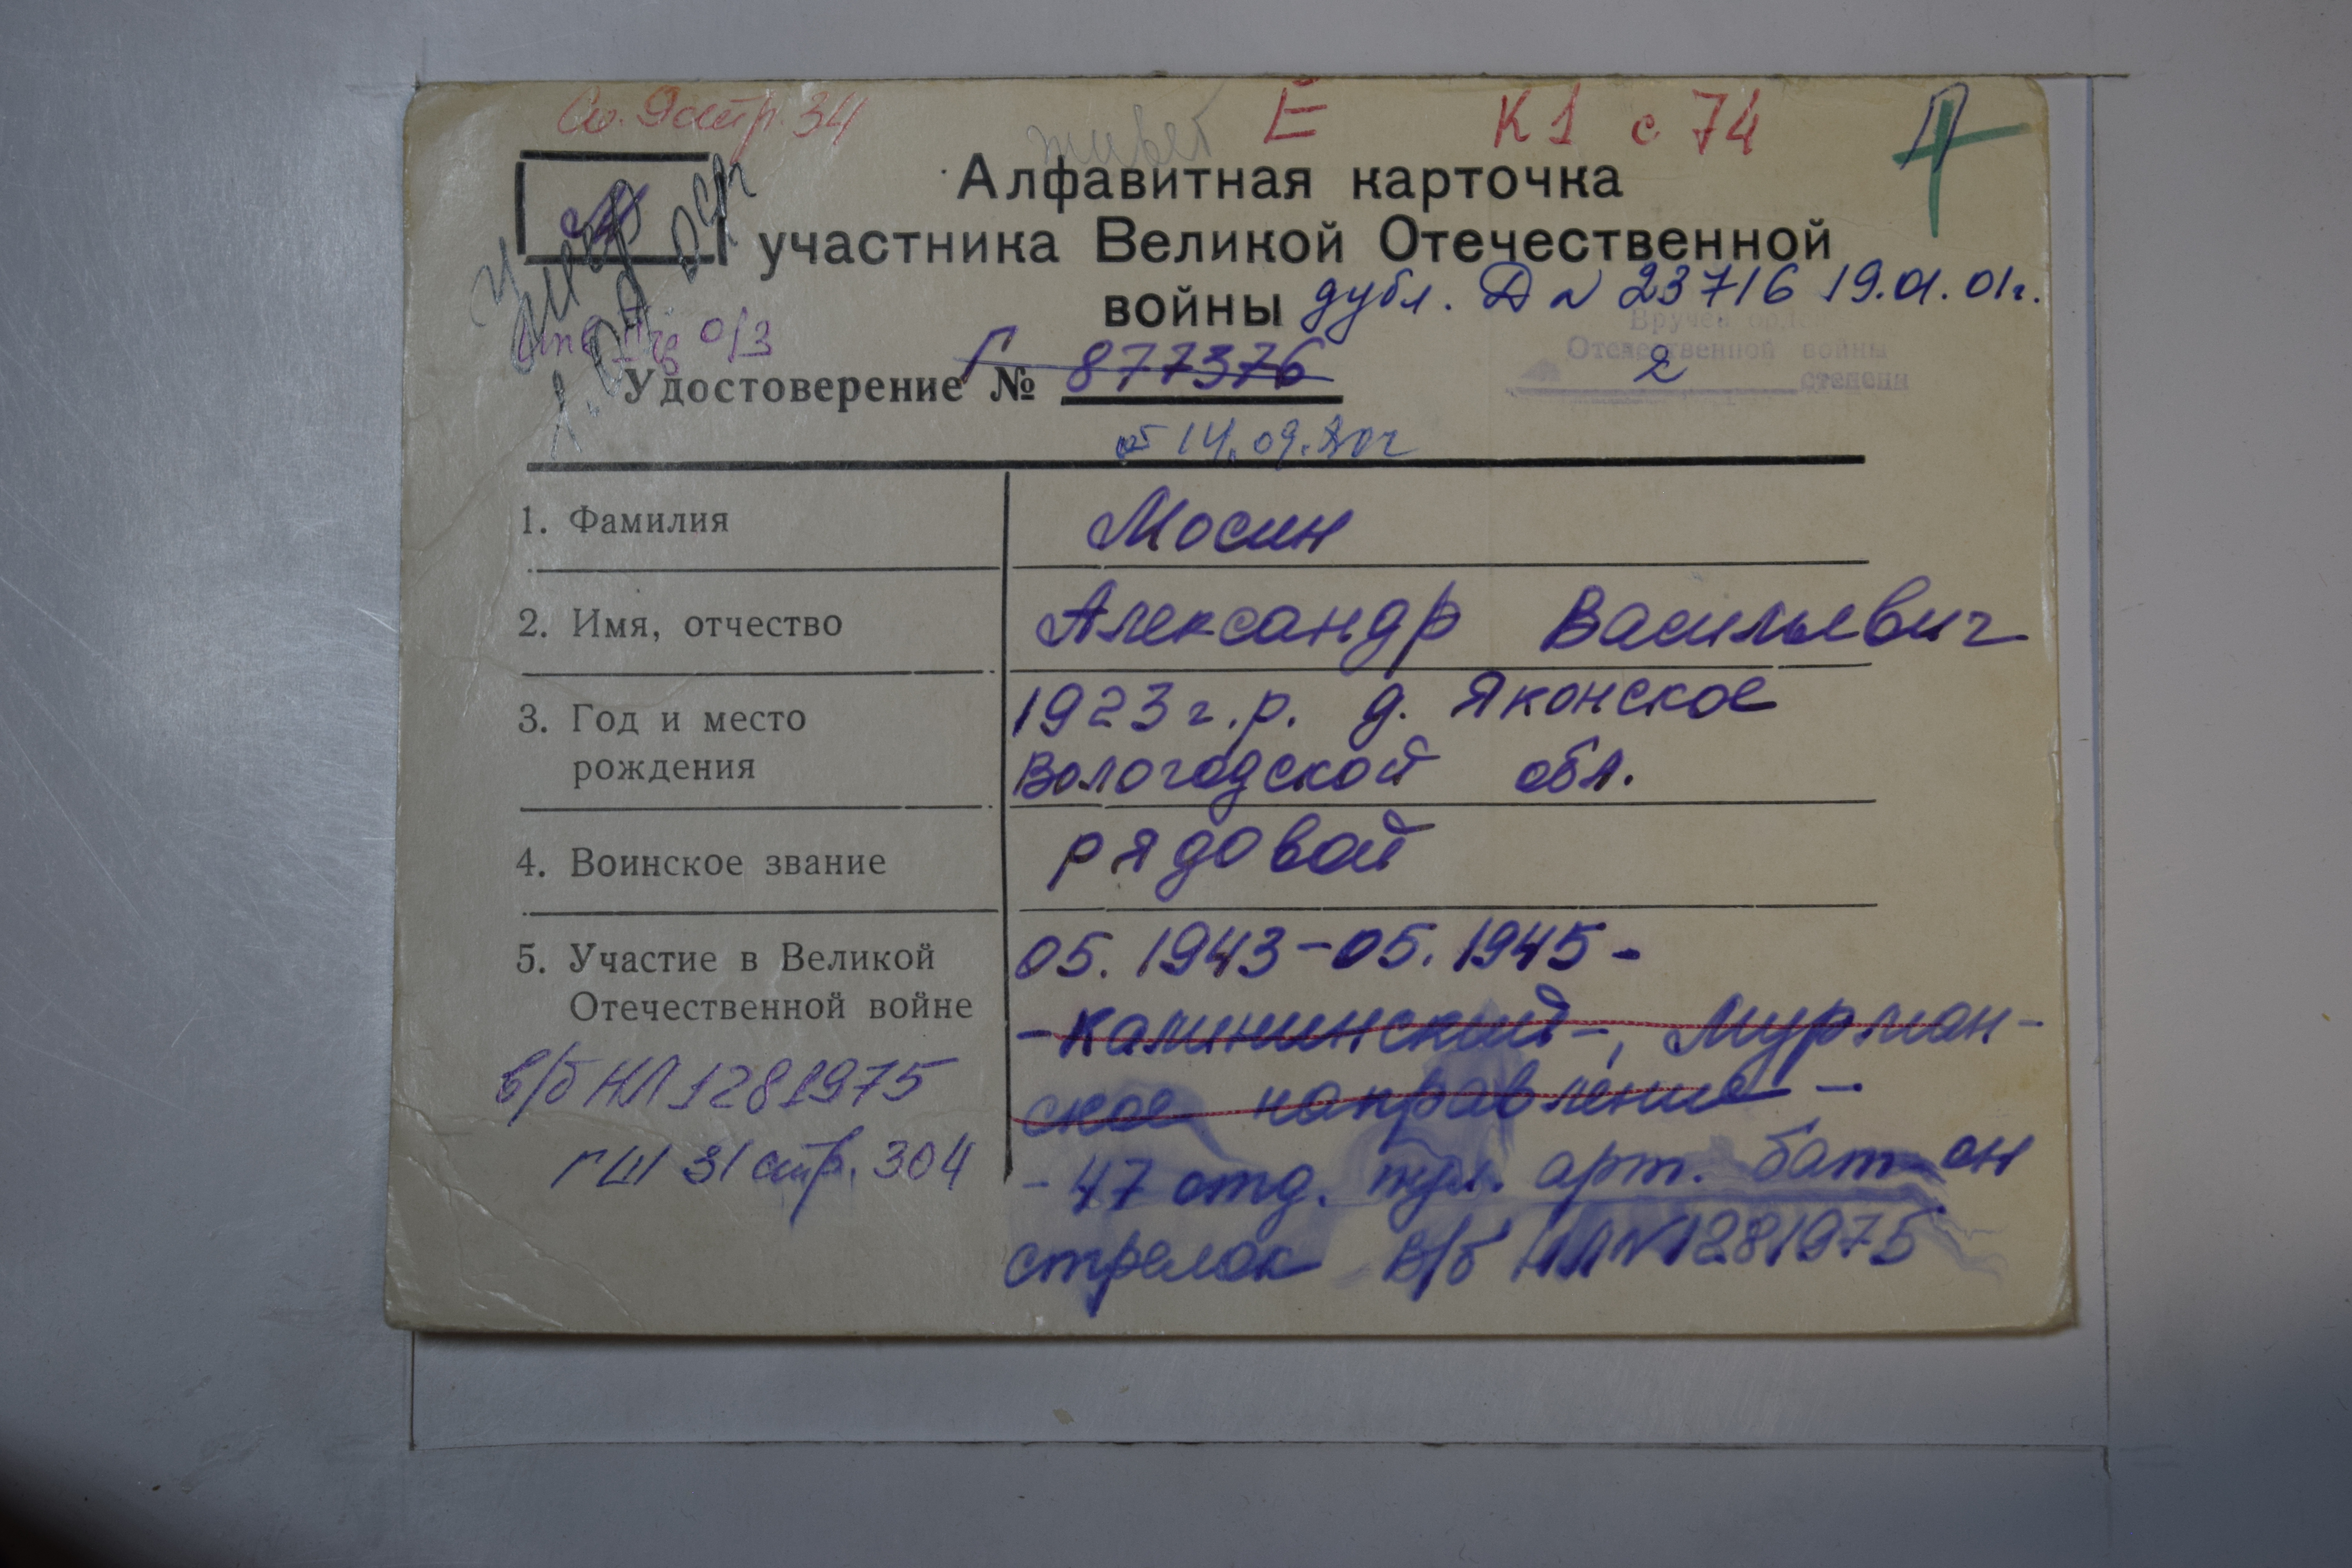 стр. 34
живет Е К1 с 74 П
Алфавитная карточка
участника Великой Отечественной
войны дубл. Д № 23716 19.01.01г.
Умер
Вручен орден
Отечественной войны
2 степени
Удостоверение Г № 877376
от 14.09.80г
1. Фамилия Мосин
2. Имя, отчество Александр Васильевич
3. Год и место 1923 г.р. д. Яконское
рождения Вологодской обл.
4. Воинское звание рядовой
5. Участие в Великой 05.1943-05.1945-
Отечественной войне -Калининский-, Мурман-
в/б НЛ 1281975 ское направление -
ГШ 31 стр. 304 -47 отд. пул. арт. бат-он
стрелок в/б НЛ № 1281975